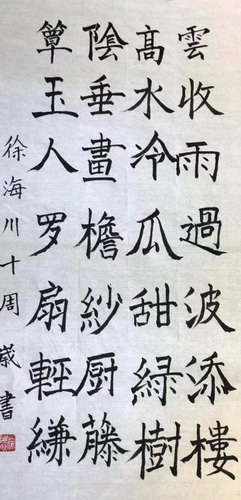 雲收雨過波添樓
髙水冷瓜甜綠樹
陰垂畫檐紗厨藤
簟玉人罗扇輕縑
徐海川十周嵗書